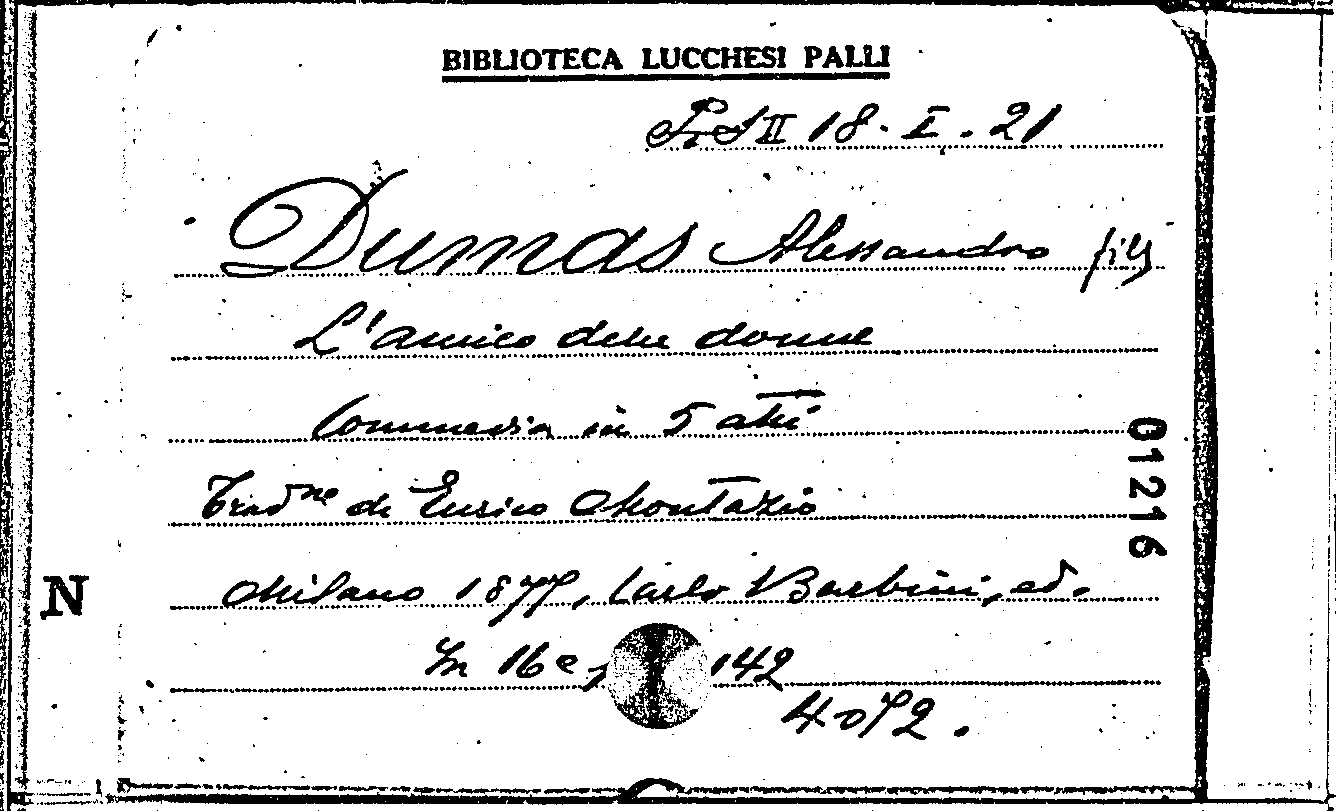 BIBLIOTECA LUCCHESI PALLI
II 18. I. 21
Dumas Alessandro fils
L'amico delle donne
Commedia in 5 atti
Tradne di Enrico Montazio
Milano 1877, Carlo Barbini, ed.
In 16e, 142
4072.
01216
N